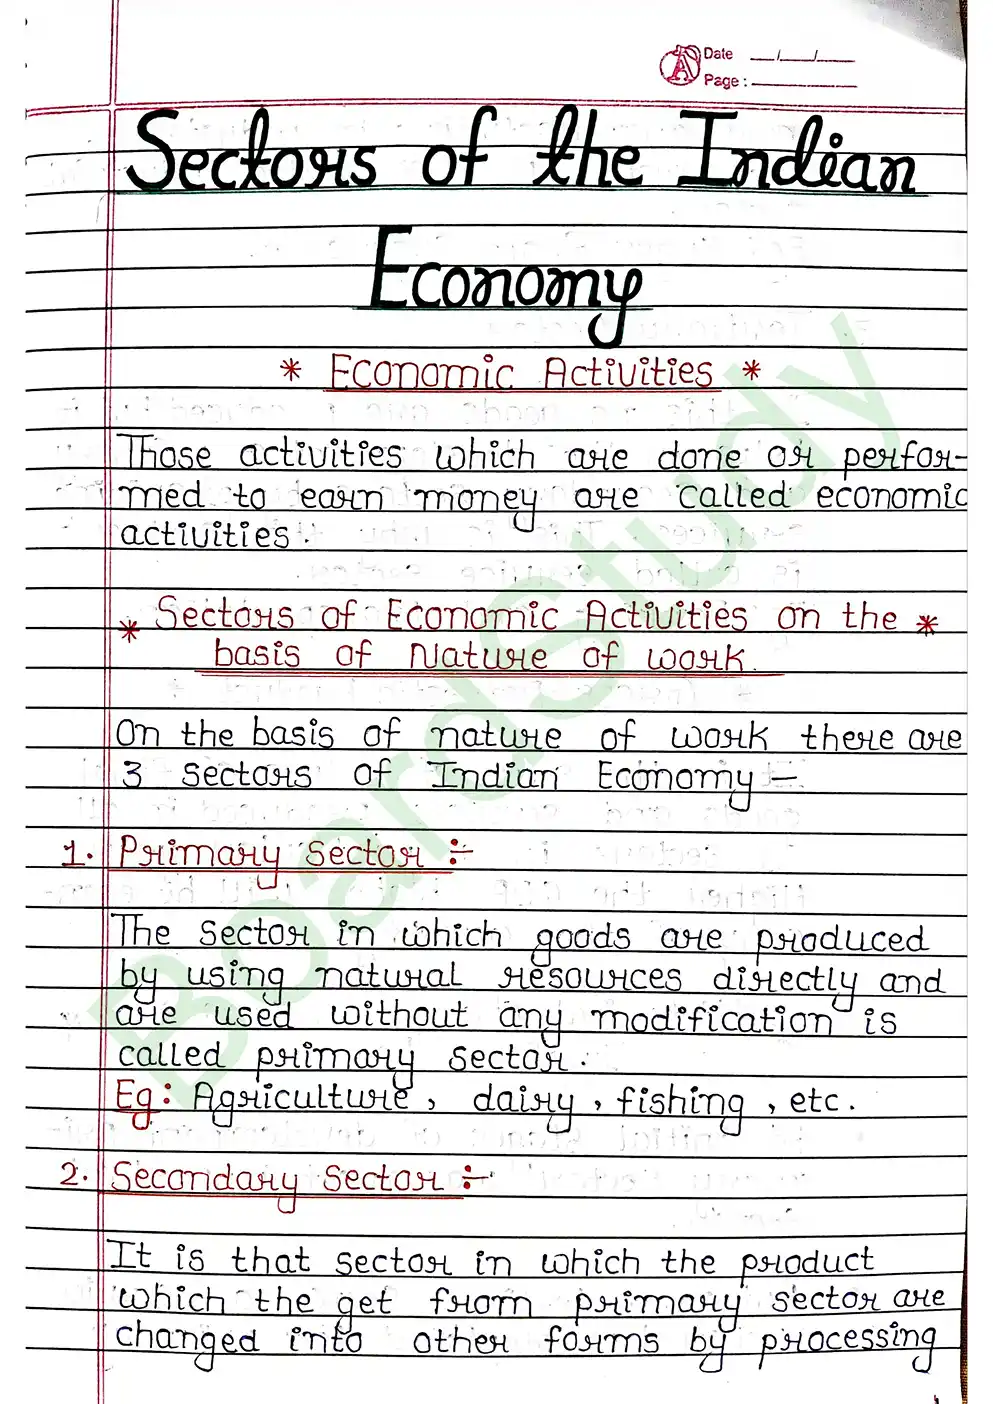 Date __/__/__
Page : ________
Sectors of the Indian
Economy
* Economic Activities *
Those activities which are done or perfor-
med to earn money are called economic
activities.
* Sectors of Economic Activities on the *
basis of Nature of work.
On the basis of nature of work there are
3 sectors of Indian Economy –
1. Primary Sector :-
The sector in which goods are produced
by using natural resources directly and
are used without any modification is
called primary sector.
Eg: Agriculture, dairy, fishing, etc.
2. Secondary Sector :-
It is that sector in which the product
which the get from primary sector are
changed into other forms by processing
BoardStudy